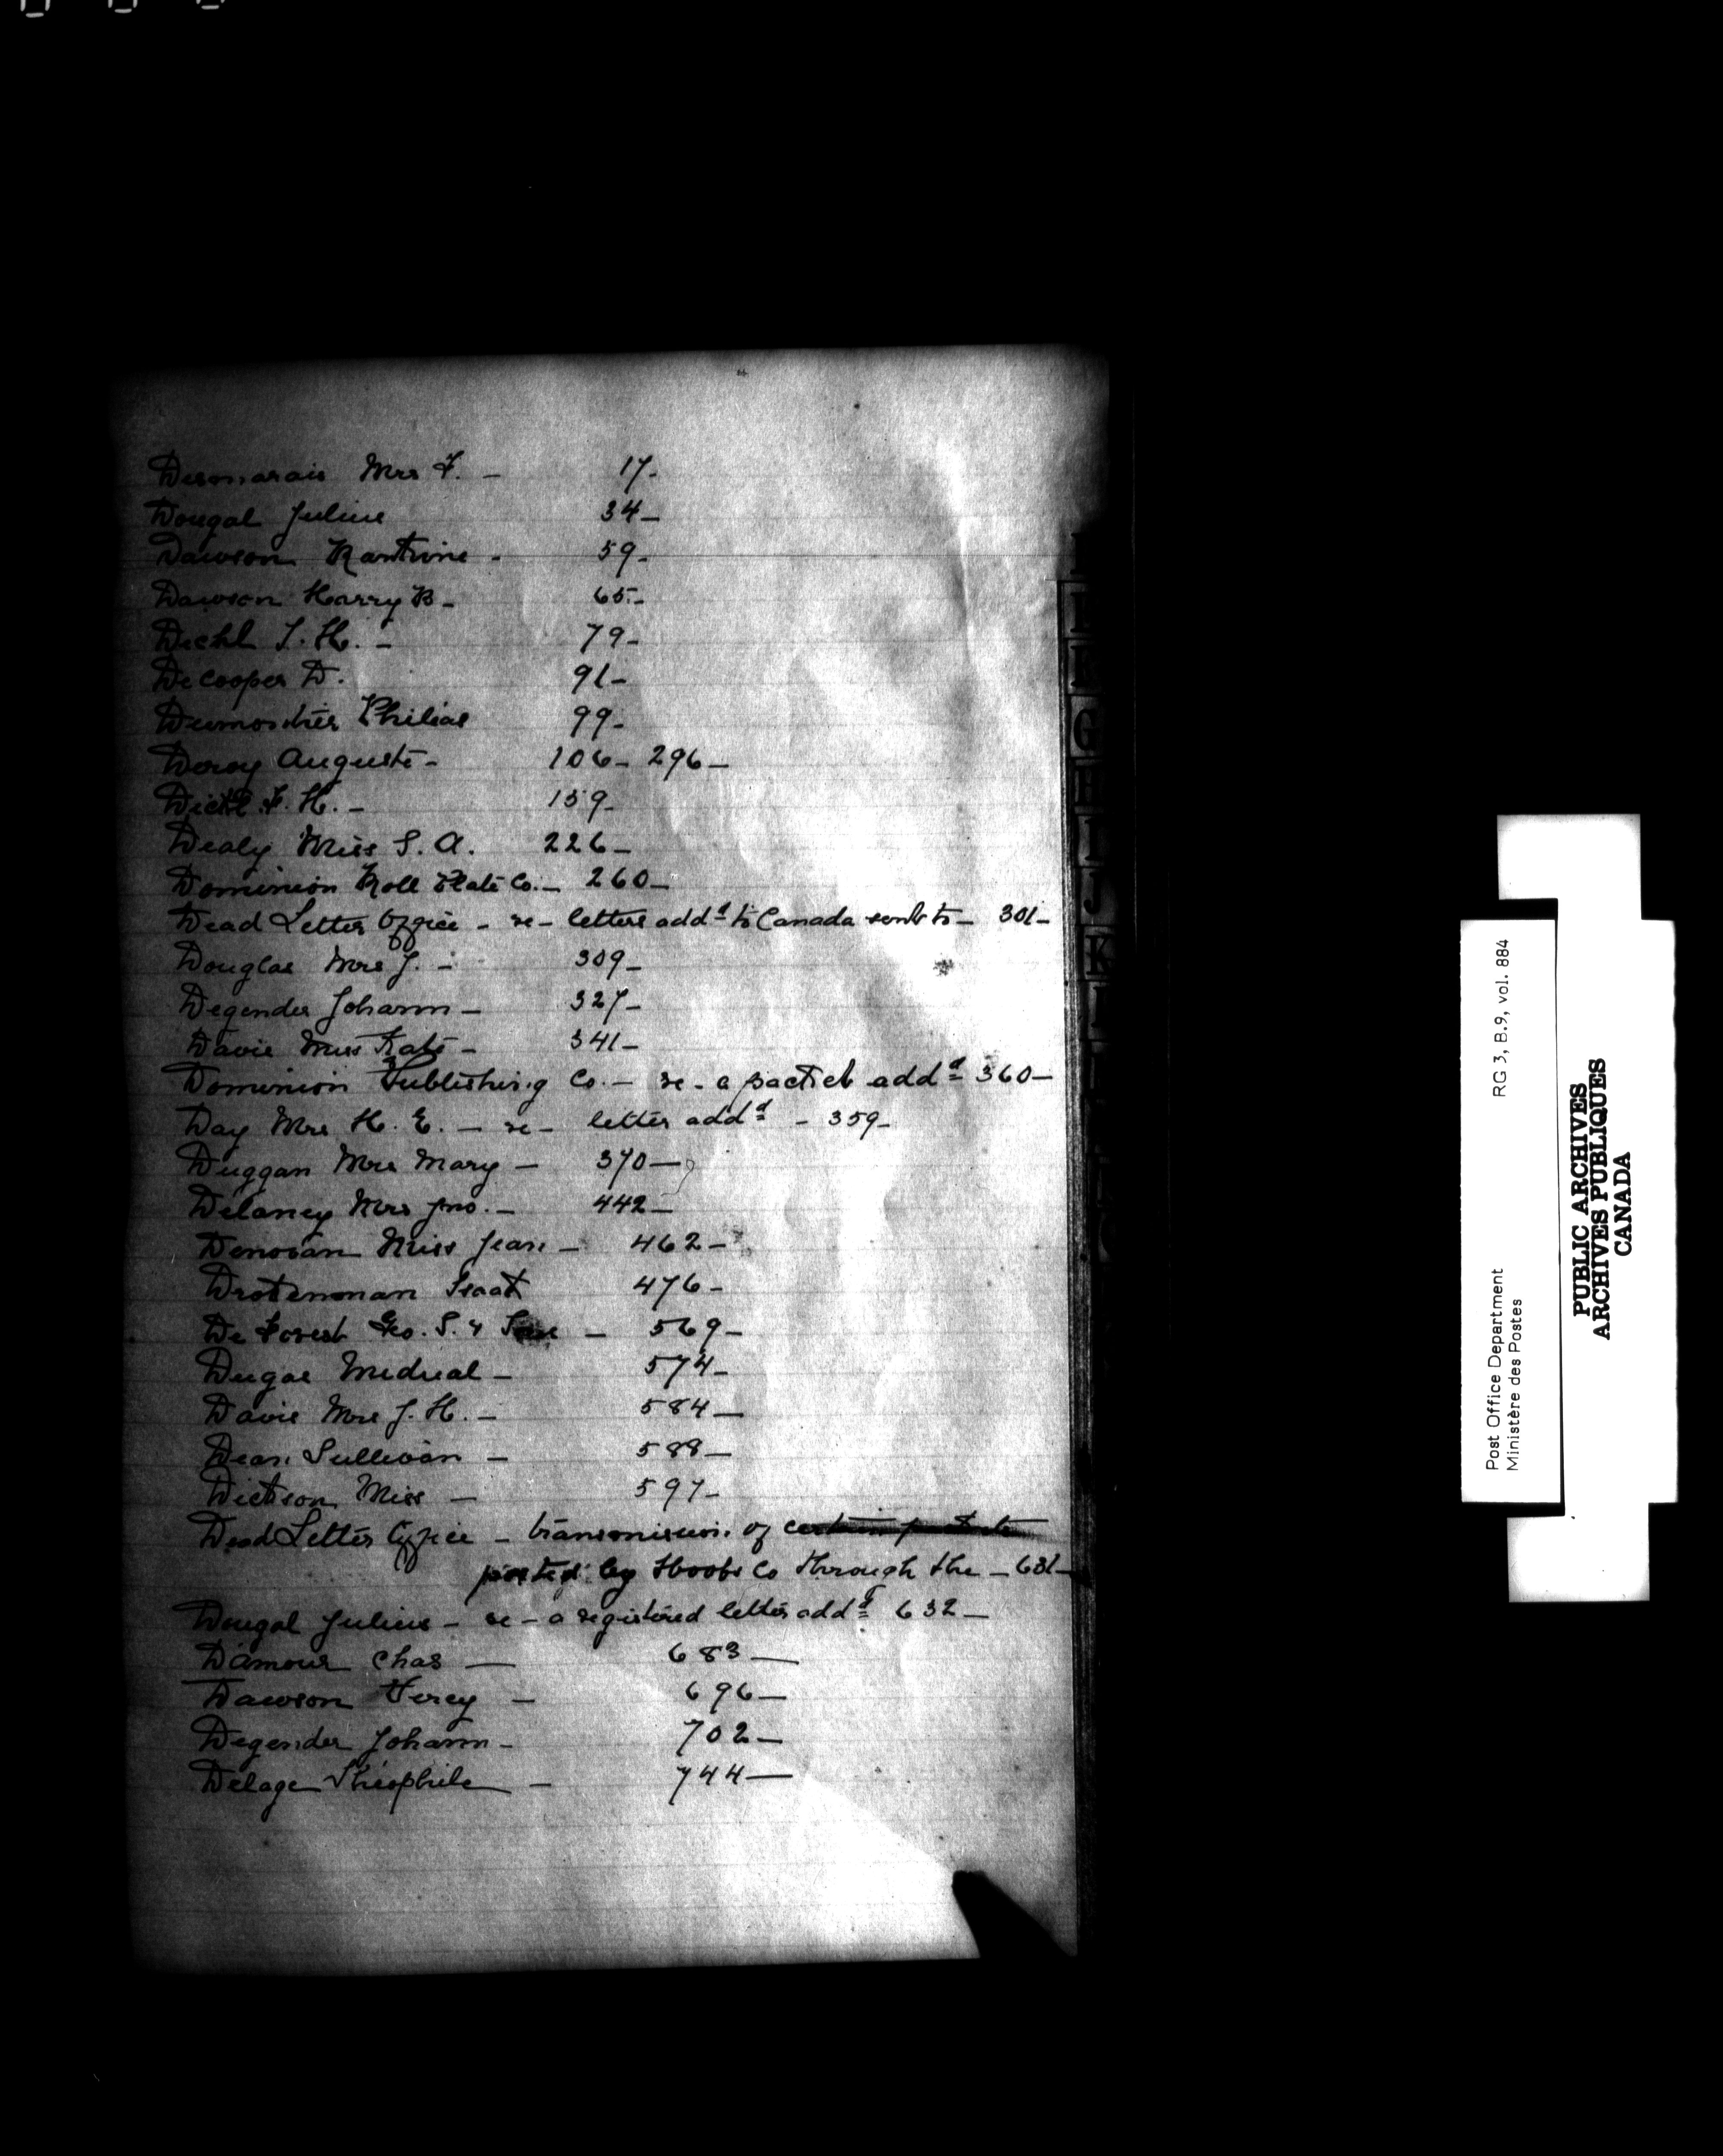 Desmarais Mrs F. – 17–
Dougal Julius 34–
Dawson Kantrine – 59–
Dawson Harry B – 65–
Diehl J. H. – 79–
De Cooper D. 91–
Philias 99–
Deroy Auguste – 106– 296–
F. H. – 159–
Dealy Miss S. A. 226–
Dominion Roll Plate Co. – 260–
Dead Letter Office – re – letters addd to Canada sent to – 301–
Douglas Mrs J. – 309–
Degender Johann – 327–
Davis Miss Kate – 341–
Dominion Publishing Co. – re – a packet addd 360–
Day Mrs H. E. – re – letter addd – 359–
Duggan Mrs Mary – 370–
Delaney Mrs Jno. – 442–
Donovan Miss Jean – 462–
Isaac 476–
De Forest Geo. S. & Sons – 569–
Dugas Medreal – 574–
Davis Mrs J. H. – 584–
Dean Sullivan – 588–
Dickson Miss – 597–
Dead Letter Office – transmission of certain packets
posted by Co through the – 631–
Dougal Julius – re – a registered letter addd 632–
D'amour Chas – 683–
Dawson Percy – 696–
Degender Johann – 702–
Delage Théophile – 744–
G
H
I
J
K
Post Office Department
Ministère des Postes
RG 3, B.9, vol. 884
PUBLIC ARCHIVES
ARCHIVES PUBLIQUES
CANADA